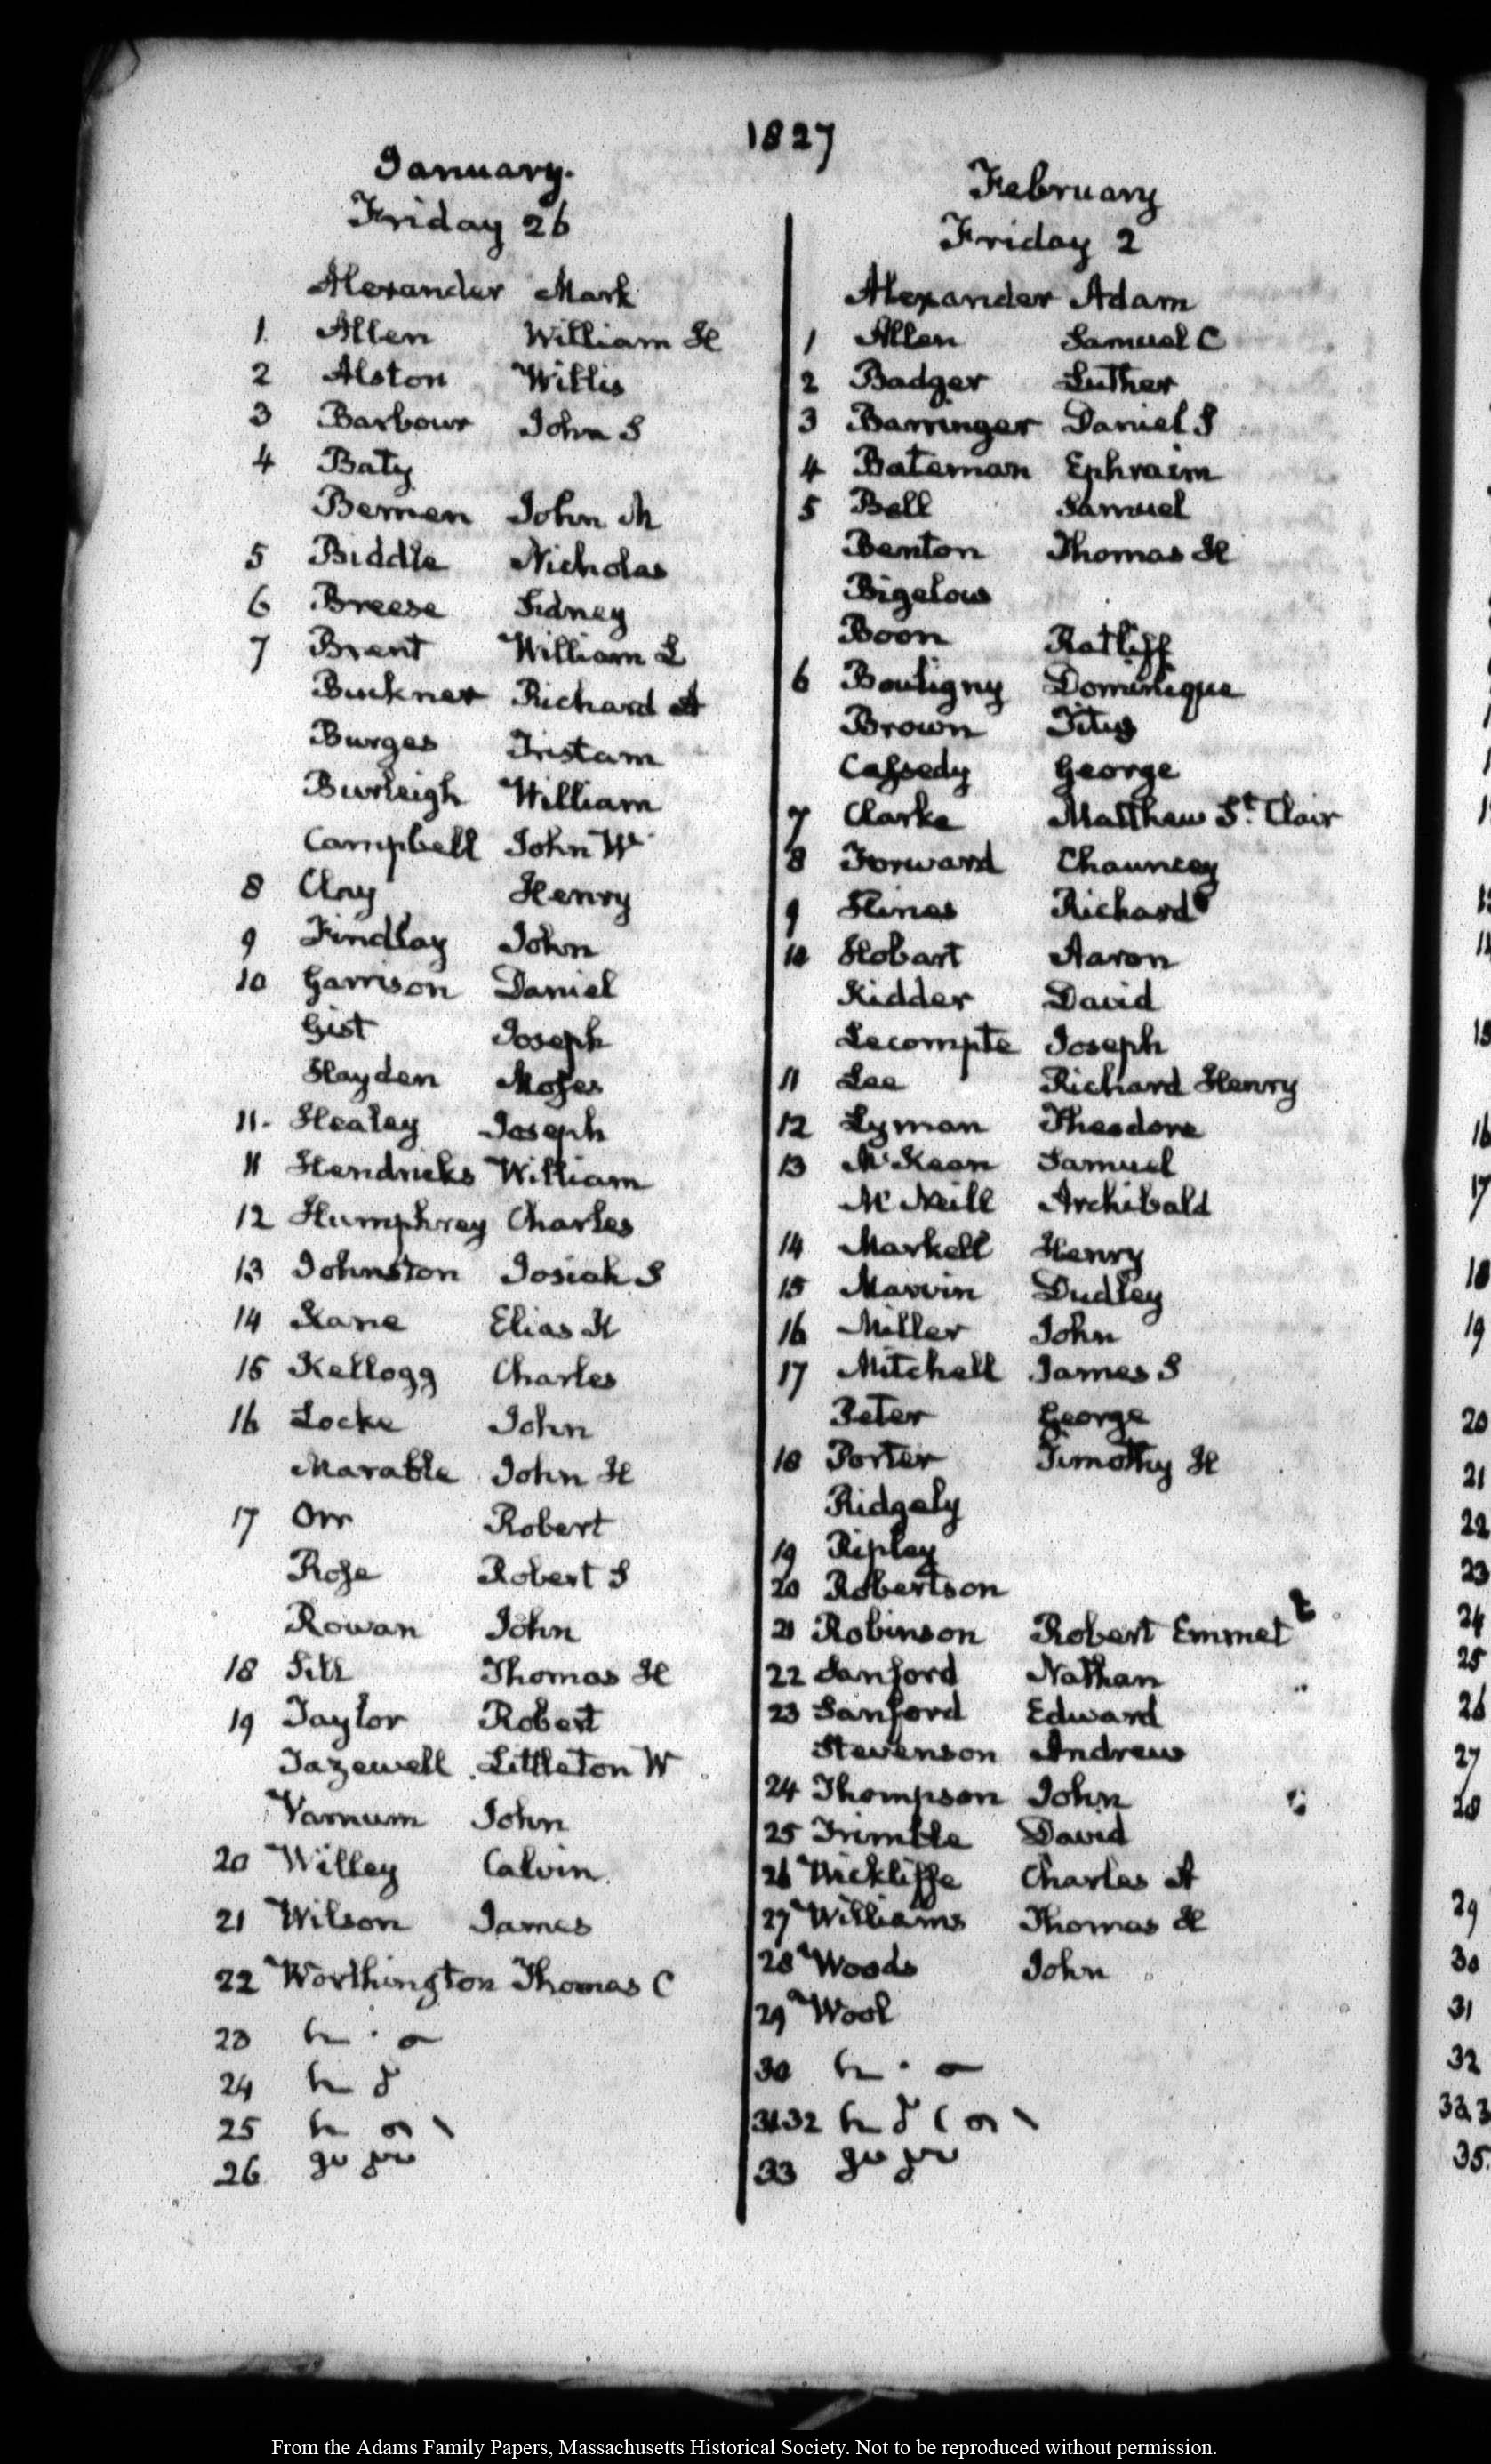 1827
January.
Friday 26
Alexander Mark
1. Allen William H
2 Alston Willis
3 Barbour John S
4 Baty
Bernen John M
5 Biddle Nicholas
6 Breese Sidney
7 Brent William L
Buckner Richard A
Burges Tristam
Burleigh William
Campbell John W
8 Clay Henry
9 Findlay John
10 Garrison Daniel
Gist Joseph
Hayden Moses
11. Healey Joseph
11 Hendricks William
12 Humphrey Charles
13 Johnston Josiah S
14 Kane Elias K
15 Kellogg Charles
16 Locke John
Marable John H
17 Orr Robert
Rose Robert S
Rowan John
18 Sill Thomas H
19 Taylor Robert
Tazewell Littleton W
Varnum John
20 Willey Calvin
21 Wilson James
22 Worthington Thomas C
23
24
25
26
February
Friday 2
Alexander Adam
1 Allen Samuel C
2 Badger Luther
3 Barringer Daniel S
4 Bateman Ephraim
5 Bell Samuel
Benton Thomas H
Bigelow
Boon Ratliff
6 Bouligny Dominique
Brown Titus
Cassedy George
7 Clarke Matthew St. Clair
8 Forward Chauncey
9 Hines Richard
10 Hobart Aaron
Kidder David
Lecompte Joseph
11 Lee Richard Henry
12 Lyman Theodore
13 McKean Samuel
McNeill Archibald
14 Markell Henry
15 Marvin Dudley
16 Miller John
17 Mitchell James S
Peter George
18 Porter Timothy H
Ridgely
19 Ripley
20 Robertson
21 Robinson Robert Emmet
22 Sanford Nathan
23 Sanford Edward
Stevenson Andrew
24 Thompson John
25 Trimble David
26 Wickliffe Charles A
27 Williams Thomas H
28 Woods John
29 Wool
30
31 32
33
From the Adams Family Papers, Massachusetts Historical Society. Not to be reproduced without permission.